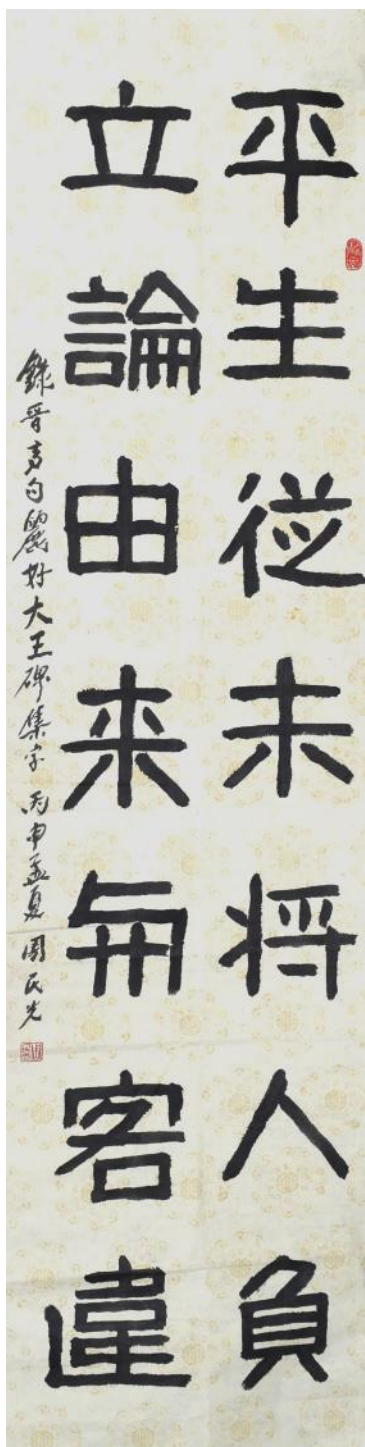 平生従未将人負
立論由来每客違
錄晋高句麗好大王碑集字 丙申孟夏 周民光